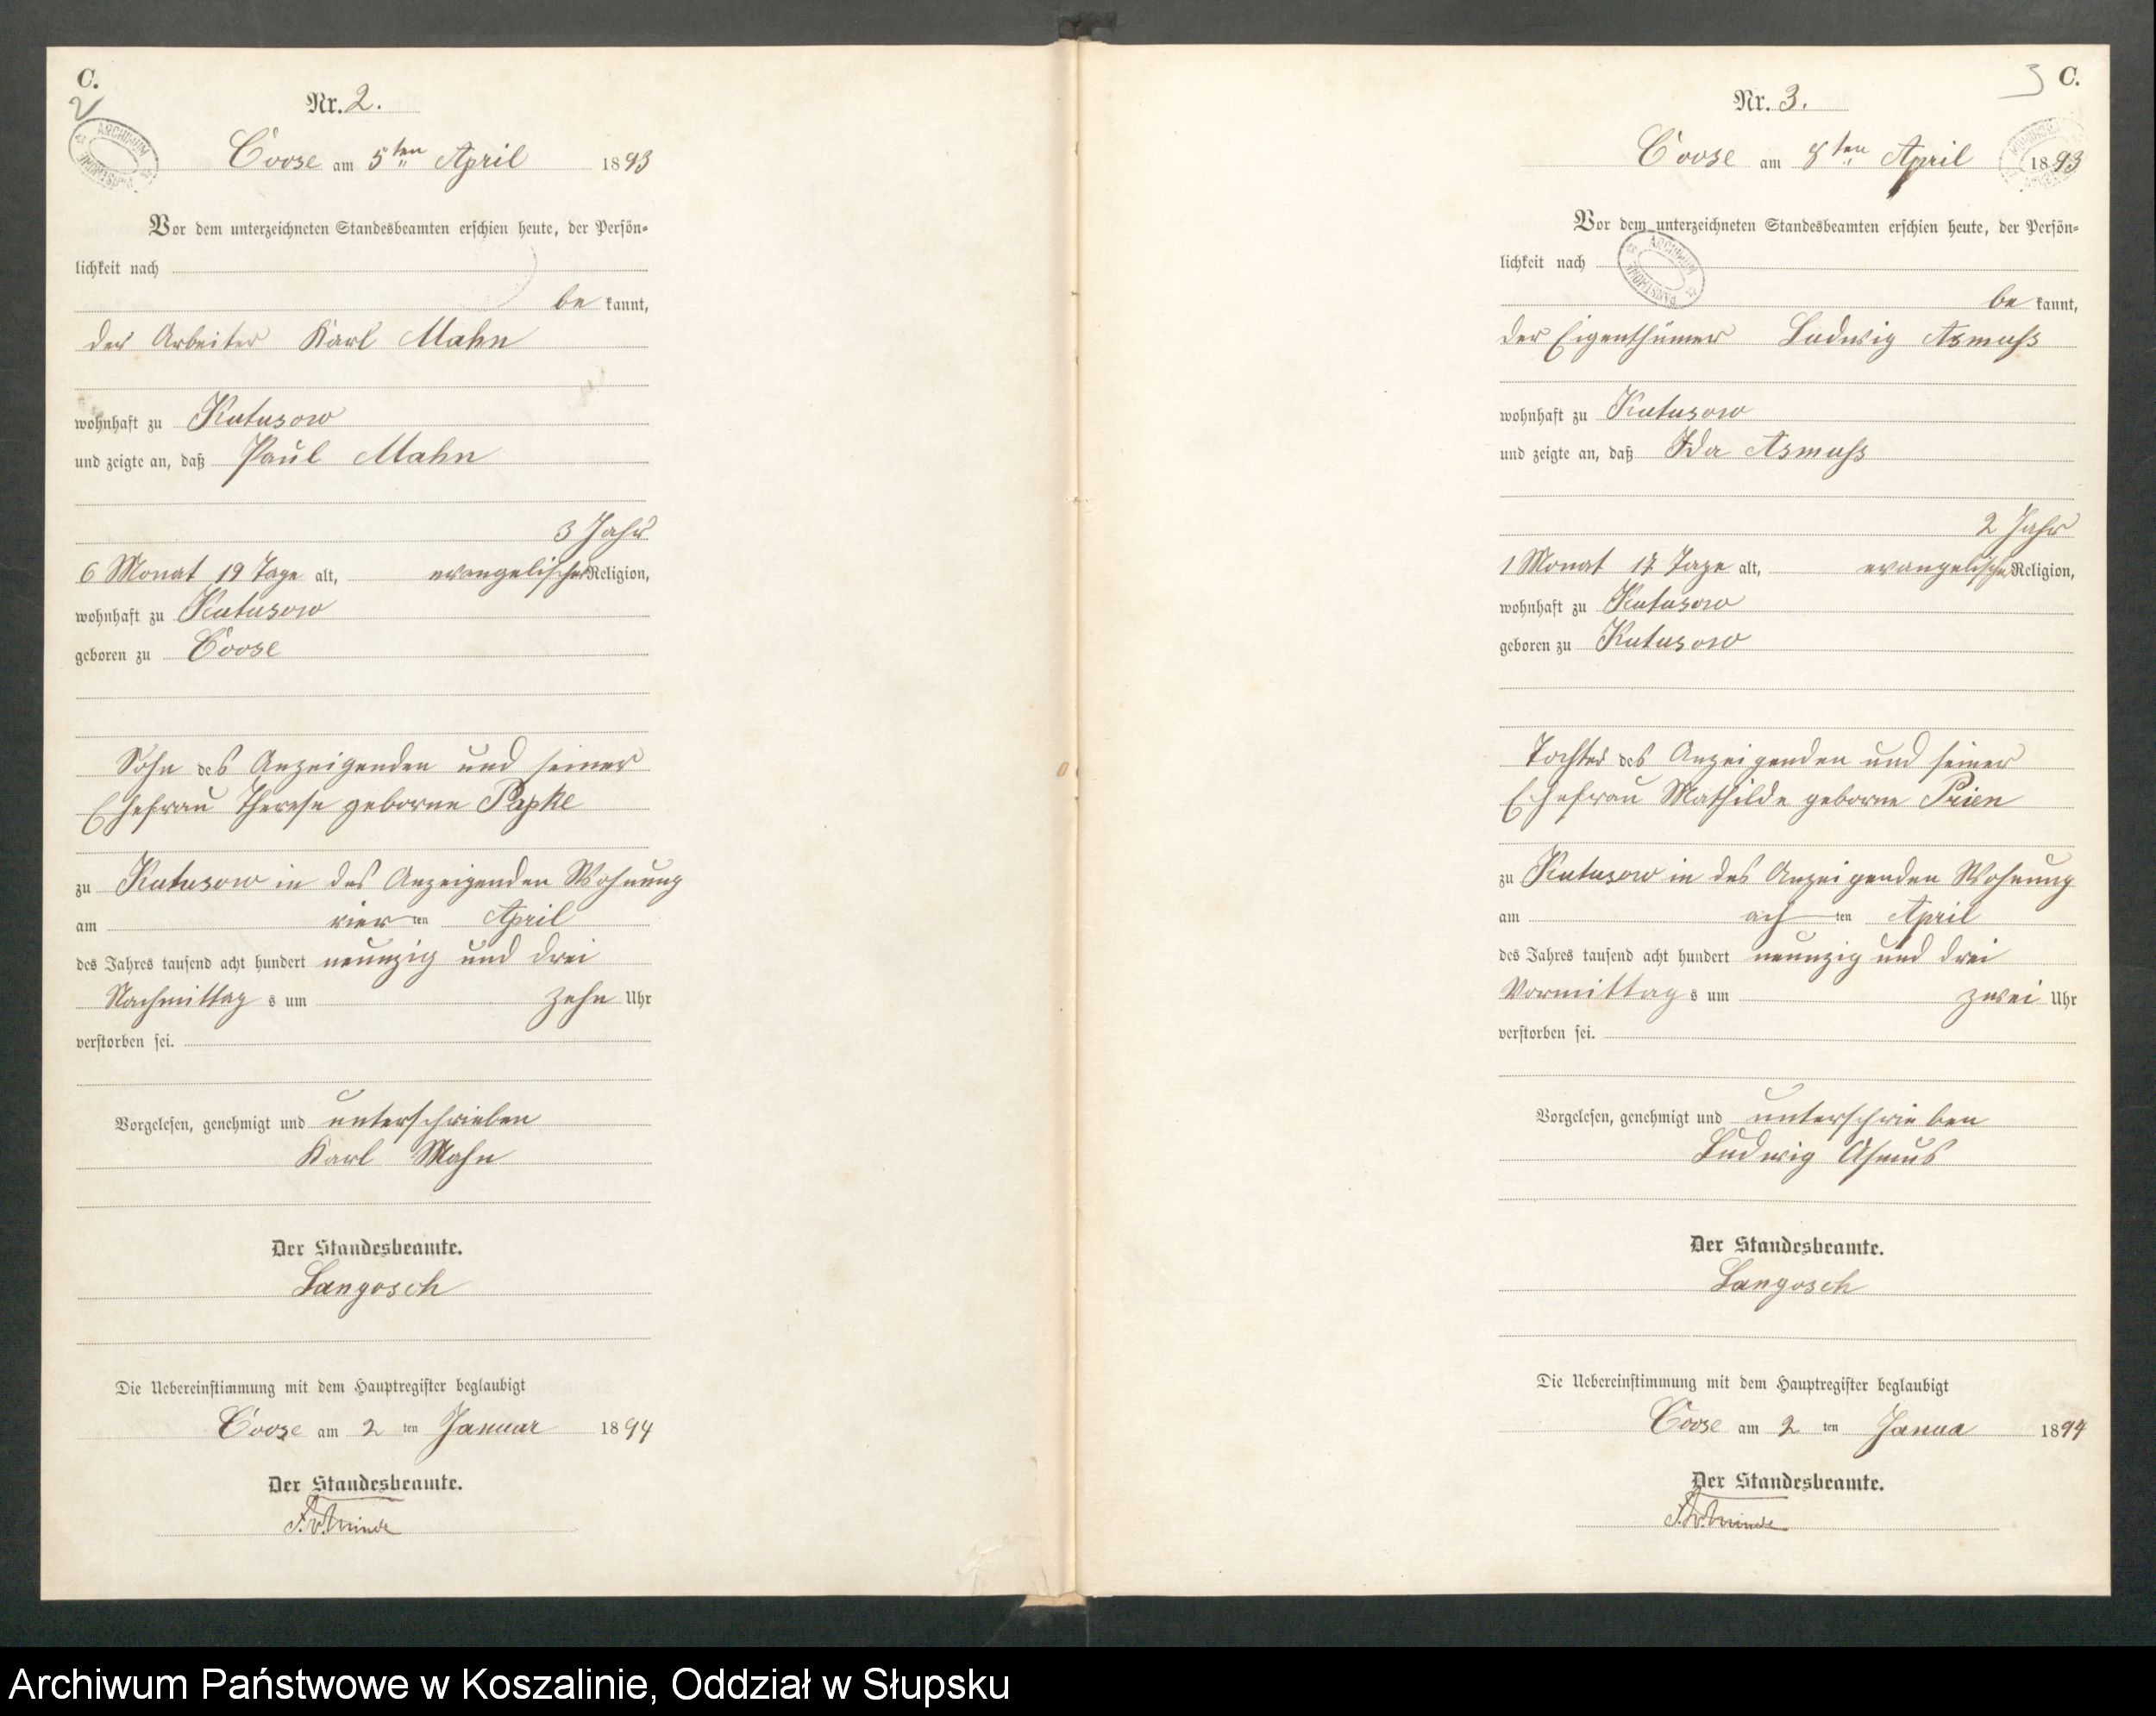 C.
2
Nr. 2.
ARCHIWUM
PAŃSTWOWE
Coose am 5ten April 1893
Vor dem unterzeichneten Standesbeamten erschien heute, der Persön-
lichkeit nach
be kannt,
der Arbeiter Karl Mahn
wohnhaft zu Kutusow
und zeigte an, daß Paul Mahn
3 Jahr
6 Monat 19 Tage alt, evangelischer Religion,
wohnhaft zu Kutusow
geboren zu Coose
Sohn des Anzeigenden und seiner
Ehefrau Therese geborne Papke
zu Kutusow in des Anzeigenden Wohnung
am vier ten April
des Jahres tausend acht hundert neunzig und drei
Nachmittag s um zehn Uhr
verstorben sei.
Vorgelesen, genehmigt und unterschrieben
Karl Mahn
Der Standesbeamte.
Langosch
Die Uebereinstimmung mit dem Hauptregister beglaubigt
Coose am 2 ten Januar 1894
Der Standesbeamte.
3 C.
Nr. 3.
Coose am 8ten April 1893
Vor dem unterzeichneten Standesbeamten erschien heute, der Persön-
ARCHIWUM
PAŃSTWOWE
lichkeit nach
be kannt,
der Eigenthümer Ludwig Asmuss
wohnhaft zu Kutusow
und zeigte an, daß Ida Asmuss
2 Jahr
1 Monat 17 Tage alt, evangelische Religion,
wohnhaft zu Kutusow
geboren zu Kutusow
Tochter des Anzeigenden und seiner
Ehefrau Mathilde geborne Prien
zu Kutusow in des Anzeigenden Wohnung
am ach ten April
des Jahres tausend acht hundert neunzig und drei
Vormittag s um zwei Uhr
verstorben sei.
Vorgelesen, genehmigt und unterschrieben
Ludwig Asmus
Der Standesbeamte.
Langosch
Die Uebereinstimmung mit dem Hauptregister beglaubigt
Coose am 2 ten Janua 1894
Der Standesbeamte.
Archiwum Państwowe w Koszalinie, Oddział w Słupsku